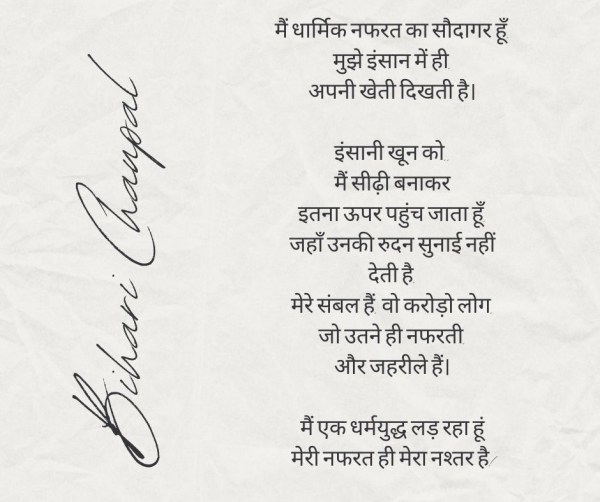 Bihari Chaupal
मैं धार्मिक नफरत का सौदागर हूँ
मुझे इंसान में ही
अपनी खेती दिखती है।
इंसानी खून को
मैं सीढ़ी बनाकर
इतना ऊपर पहुंच जाता हूँ
जहाँ उनकी रुदन सुनाई नहीं
देती है
मेरे संबल हैं वो करोड़ो लोग
जो उतने ही नफरती
और जहरीले हैं।
मैं एक धर्मयुद्ध लड़ रहा हूं
मेरी नफरत ही मेरा नश्तर है